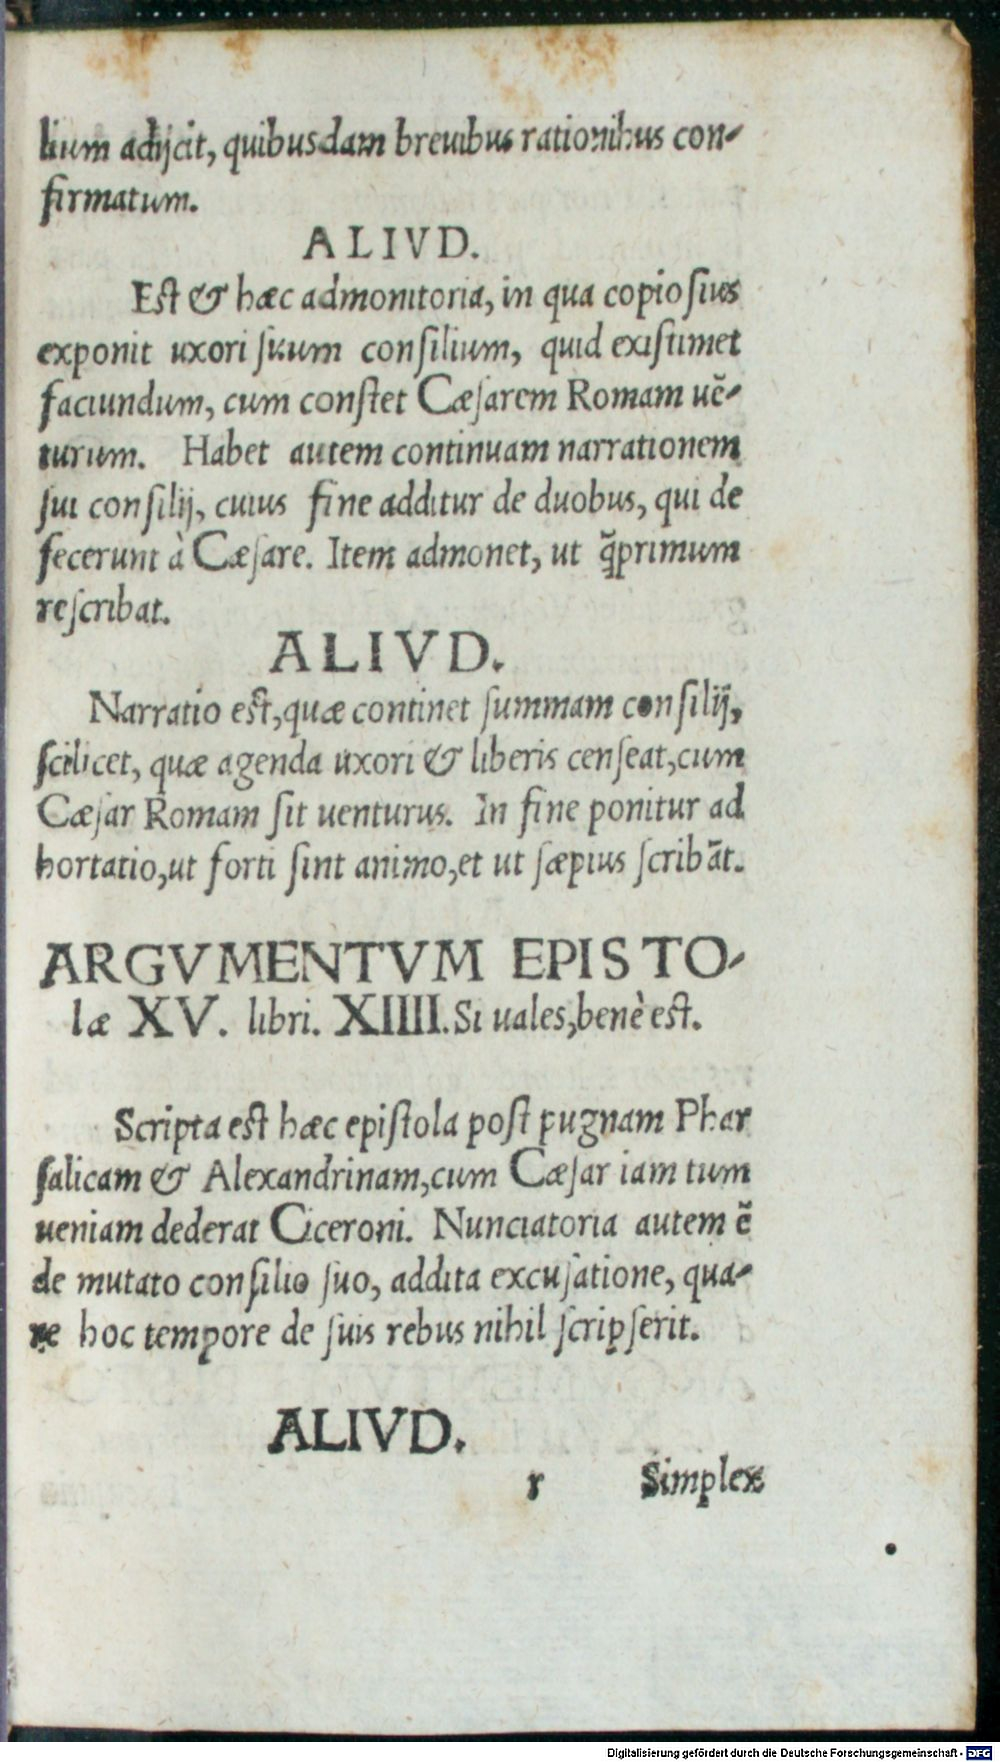 lium adijcit, quibusdam breuibus rationibus con-
firmatum.
ALIVD.
Est & hæc admonitoria, in qua copiosius
exponit uxori suum consilium, quid existimet
faciundum, cum constet Cæsarem Romam uē-
turum. Habet autem continuam narrationem
sui consilij, cuius fine additur de duobus, qui de
fecerunt à Cæsare. Item admonet, ut q̃primum
rescribat.
ALIVD.
Narratio est, quæ continet summam consilij,
scilicet, quæ agenda uxori & liberis censeat, cum
Cæsar Romam sit uenturus. In fine ponitur ad
hortatio, ut forti sint animo, et ut sæpius scribãt.
ARGVMENTVM EPISTO-
læ XV. libri. XIIII. Si uales, benè est.
Scripta est hæc epistola post pugnam Phar
salicam & Alexandrinam, cum Cæsar iam tum
ueniam dederat Ciceroni. Nunciatoria autem ē
de mutato consilio suo, addita excusatione, qua-
re hoc tempore de suis rebus nihil scripserit.
ALIVD.
r Simplex
Digitalisierung gefördert durch die Deutsche Forschungsgemeinschaft - DFG